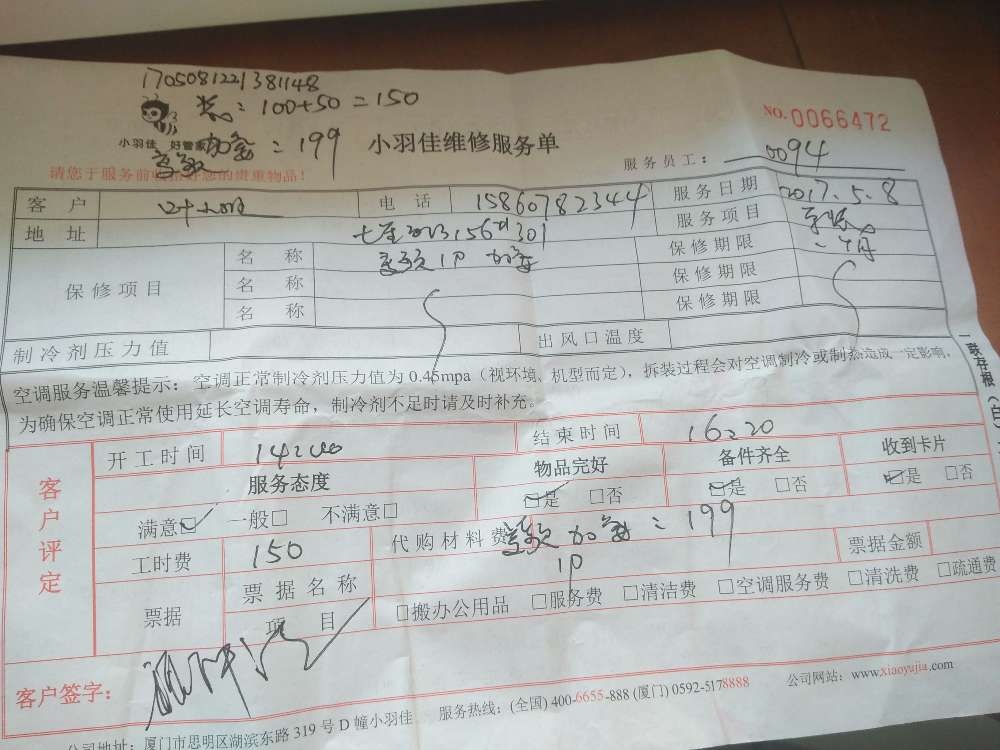 1705081221381148
100+50=150
小羽佳 好管家
加氟:199
小羽佳维修服务单
NO.0066472
请您于服务前收拾好您的贵重物品!
服务员工: 0094
客户
电话 15860782344
服务日期 2017.5.8
地址
301
服务项目
保修项目
名称 1P 加氟
保修期限 一个月
名称
保修期限
名称
保修期限
制冷剂压力值
出风口温度
空调服务温馨提示:空调正常制冷剂压力值为0.45mpa(视环境、机型而定),拆装过程会对空调制冷或制热造成一定影响,
为确保空调正常使用延长空调寿命,制冷剂不足时请及时补充。
一联存根(白)
客户评定
开工时间 14:00
结束时间 16:20
服务态度
物品完好
备件齐全
收到卡片
满意☑ 一般□ 不满意□
☑是 □否
☑是 □否
☑是 □否
工时费 150
代购材料费 加氟=199
1P
票据金额
票据
票据名称
项目
□搬办公用品 □服务费 □清洁费 □空调服务费 □清洗费 □疏通费
客户签字:
公司地址:厦门市思明区湖滨东路319号D幢小羽佳 服务热线:(全国)400-6655-888(厦门)0592-5178888 公司网站:www.xiaoyujia.com